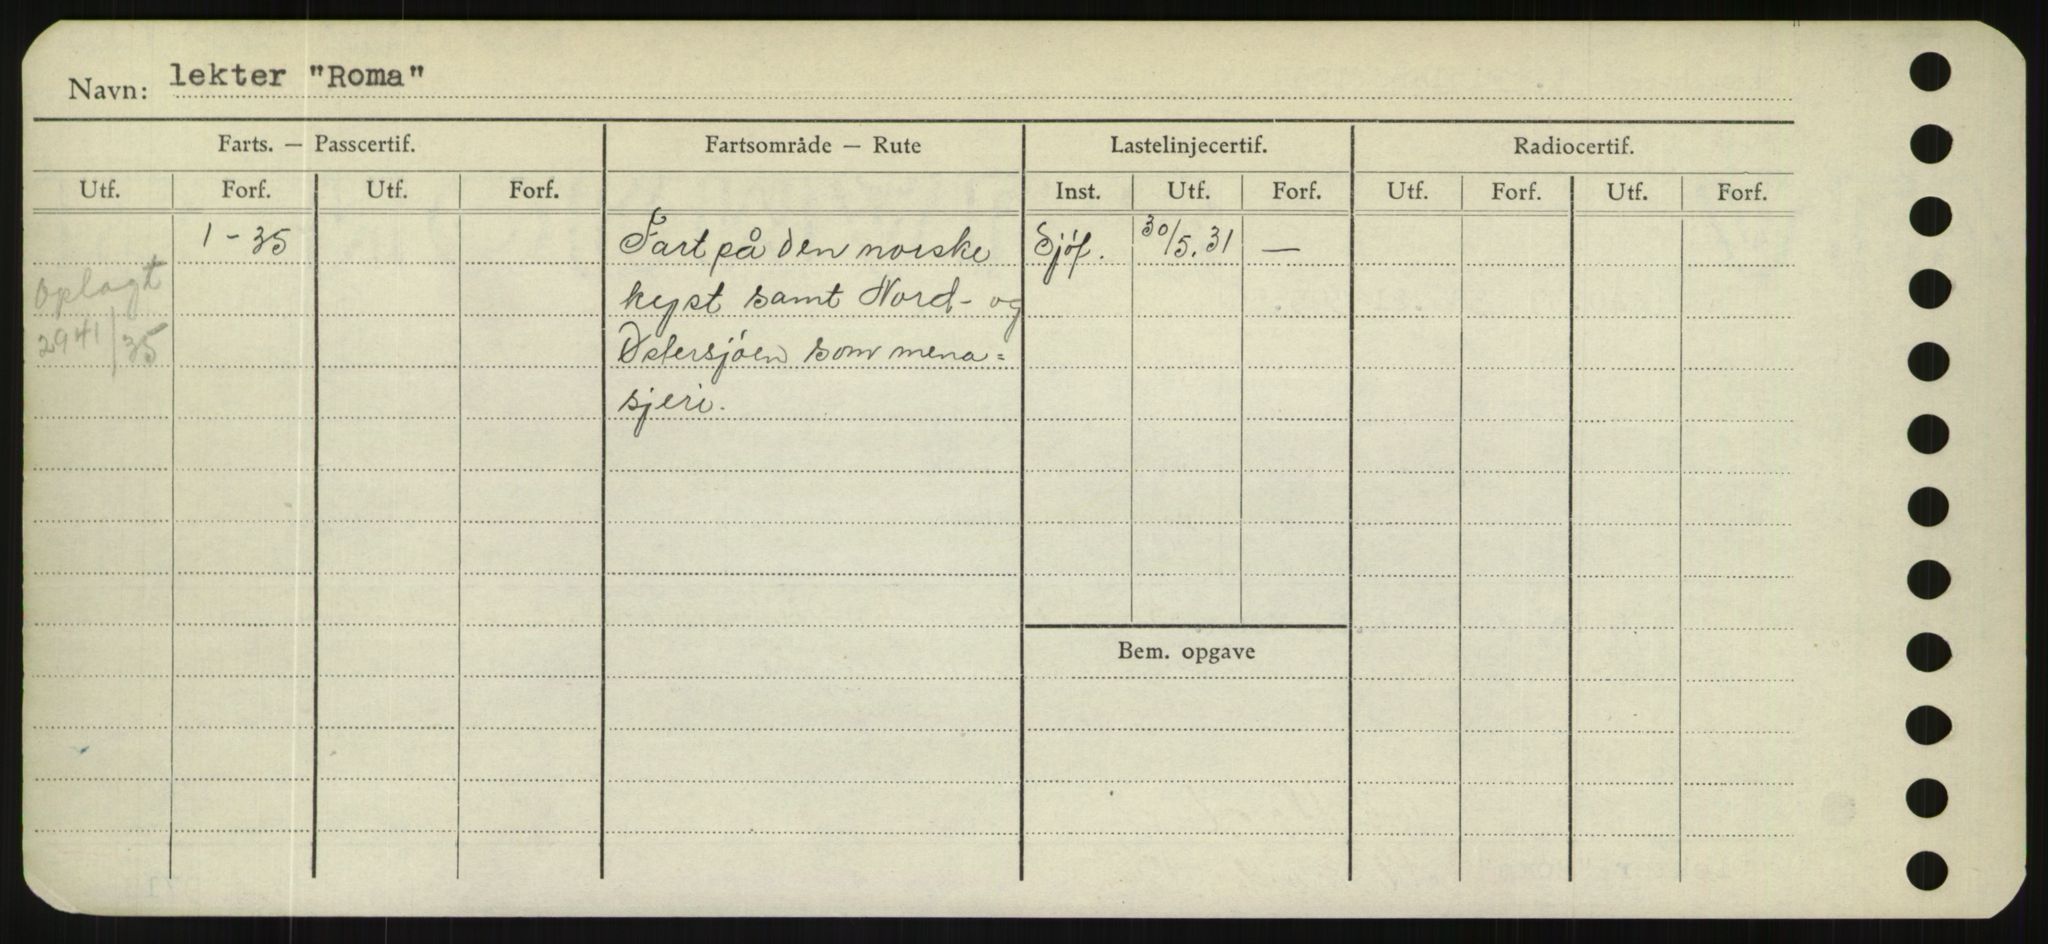 Navn: lekter "Roma"
Farts. — Passcertif. Fartsområde — Rute Lastelinjecertif. Radiocertif.
Utf. Forf. Utf. Forf. Inst. Utf. Forf. Utf. Forf. Utf. Forf.
1-35 Fart på den norske Sjöf. 30/5.31 —
Oplagt kyst samt Nord- og
2941/35 Østersjöen som mena=
sjeri.
Bem. opgave